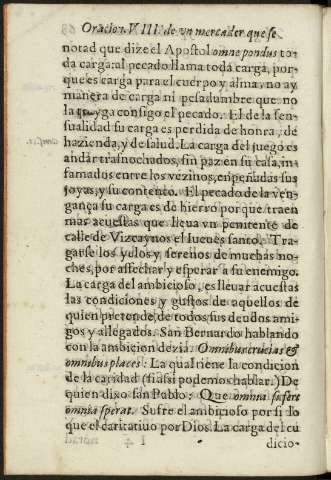 Oracion. VIII. de vn mercader que se
notad que dize el Apostol omne pondus to-
da carga: al pecado llama toda carga, por-
que es carga para el cuerpo y alma, no ay
manera de carga ni pesadumbre que no
la trayga consigo el pecado. El de la sen-
sualidad su carga es perdida de honra, de
hazienda, y de salud. La carga del juego es
andar trasnochados, sin paz en su casa, in-
famados entre los vezinos, enpeñadas sus
joyas, y su contento. El pecado de la ven-
gança su carga es de hierro porque traen
mas acuestas que lleua vn penitente de
calle de Vizcaynos el Iueues santo. Tra-
garse los yelos y serenos de muchas no-
ches, por assechar y esperar a su enemigo.
La carga del ambicioso, es lleuar acuestas
las condiciones y gustos de aquellos de
quien pretende, de todos sus deudos ami-
gos y allegados. San Bernardo hablando
con la ambicion dezia. Omnibus crucias &
omnibus places: La qual tiene la condicion
de la caridad (si assi podemos hablar.) De
quien dixo san Pablo: Que omnia suffert
omnia sperat. Sufre el ambicioso por si lo
que el caritatiuo por Dios. La carga del cu
dicio-